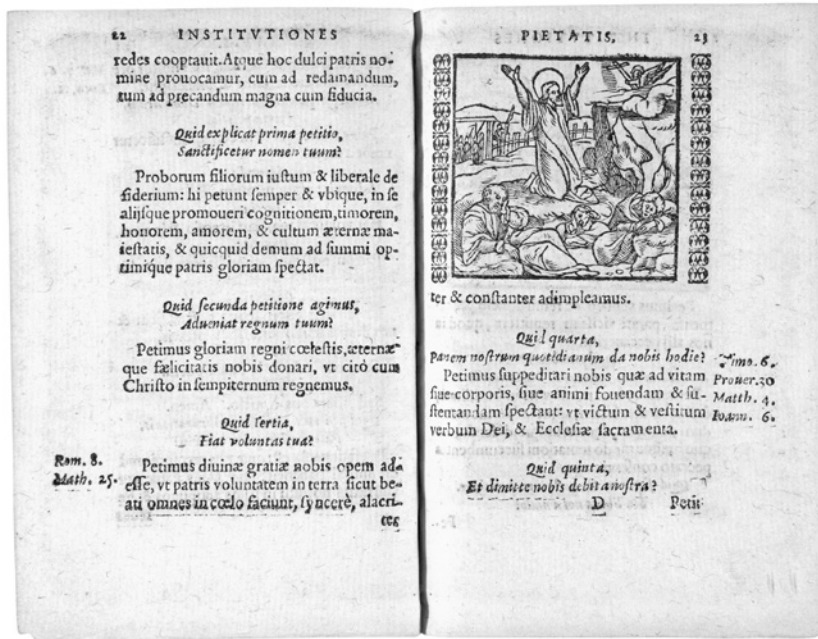 22 INSTITVTIONES
redes cooptauit. Atque hoc dulci patris no-
mine prouocamur, cum ad redamandum,
tum ad precandum magna cum fiducia.
Quid explicat prima petitio,
Sanctificetur nomen tuum?
Proborum filiorum iuſtum & liberale de
ſiderium: hi petunt ſemper & vbique, in ſe
alijſque promoueri cognitionem, timorem,
honorem, amorem, & cultum æternæ ma-
ieſtatis, & quicquid demum ad ſummi op-
timique patris gloriam ſpectat.
Quid ſecunda petitione agimus,
Adueniat regnum tuum?
Petimus gloriam regni cœleſtis, æternæ-
que fælicitatis nobis donari, vt citò cum
Chriſto in ſempiternum regnemus.
Quid tertia,
Fiat voluntas tua?
Rom. 8.
Math. 25.
Petimus diuinæ gratiæ nobis opem ad-
eſſe, vt patris voluntatem in terra ſicut be-
ati omnes in cœlo faciunt, ſyncerè, alacri-
ter
PIETATIS, 23
ter & conſtanter adimpleamus.
Quid quarta,
Panem noſtrum quotidianum da nobis hodie?
Petimus ſuppeditari nobis quæ ad vitam
ſiue corporis, ſiue animi fouendam & ſu-
ſtentandam ſpectant: vt victum & veſtitum
verbum Dei, & Eccleſiæ ſacramenta.
Timo. 6.
Prouer. 30
Matth. 4.
Ioann. 6.
Quid quinta,
Et dimitte nobis debita noſtra?
D Petit